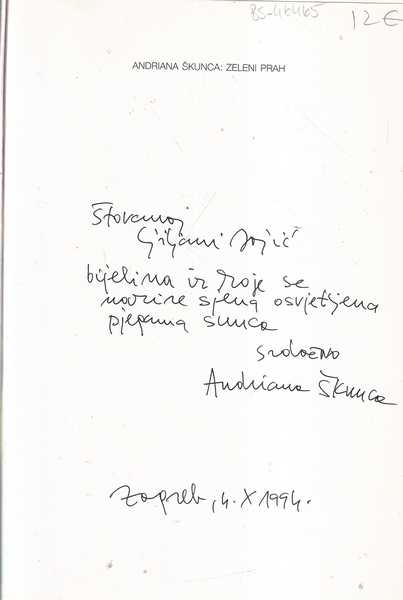 BS-46465
12€
ANDRIANA ŠKUNCA: ZELENI PRAH
Štovanoj
Ljiljani Jojić
bjelina iz koje se
nazire sjena osvjetljena
pjegama sunca
srdačno
Andriana Škunca
Zagreb, 4. X 1994.